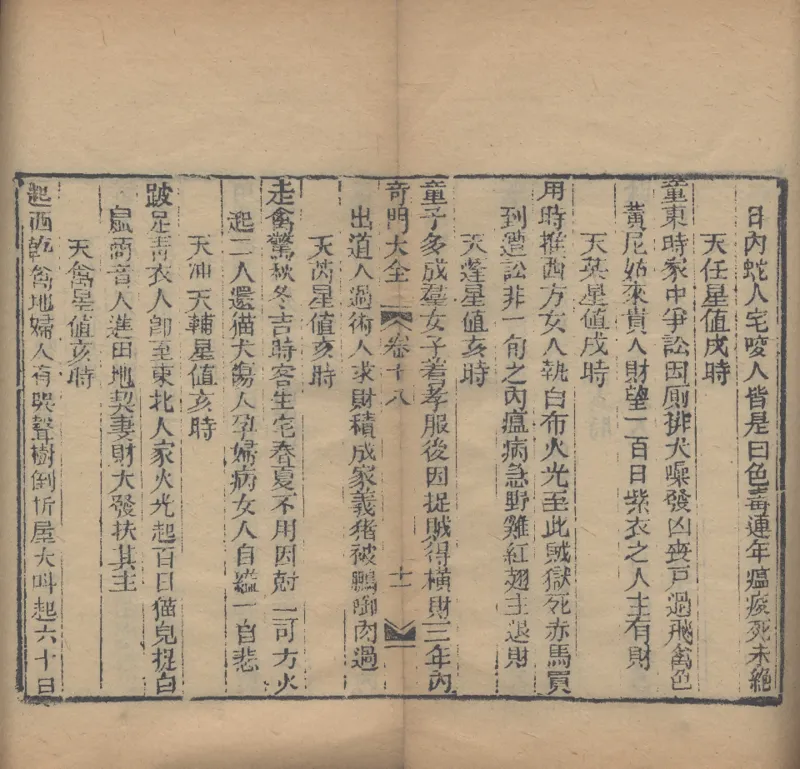 日內蛇人宅咬人皆是曰色毒連年瘟疫死未絶
天任星值戌時
童東時家中爭訟因厠排犬噪發凶喪戸過飛禽色
黃尼姑來貴人財望一百日紫衣之人主有財
天英星值戌時
用時推西方女人執白布火光至此賊獄死赤馬買
到遭訟非一旬之內瘟病急野雞紅翅主退財
天蓬星值亥時
童子多成羣女子若孝服後因捉賊得橫財三年內
奇門大全 卷十八 十一
出道人過術人求財積成家義猪被鵬啣肉過
天芮星值亥時
走禽驚秋冬吉時客生宅春夏不用因尅二司方火
起二人還猫犬傷人孕婦病女人自縊一自悲
天冲天輔星值亥時
跛足靑衣人卽至東北人家火光起百日猫兒捉白
鼠商音人進田地契妻財大發扶其主
天禽星值亥時
起西乾禽地婦人有哭聲樹倒折屋大呌起六十日